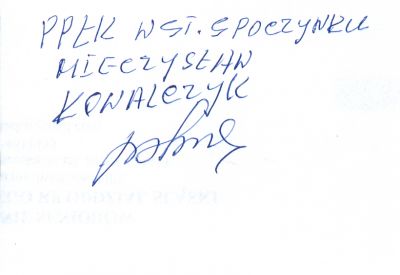 PPŁK W ST. SPOCZYNKU
MIECZYSŁAW
KOWALCZYK